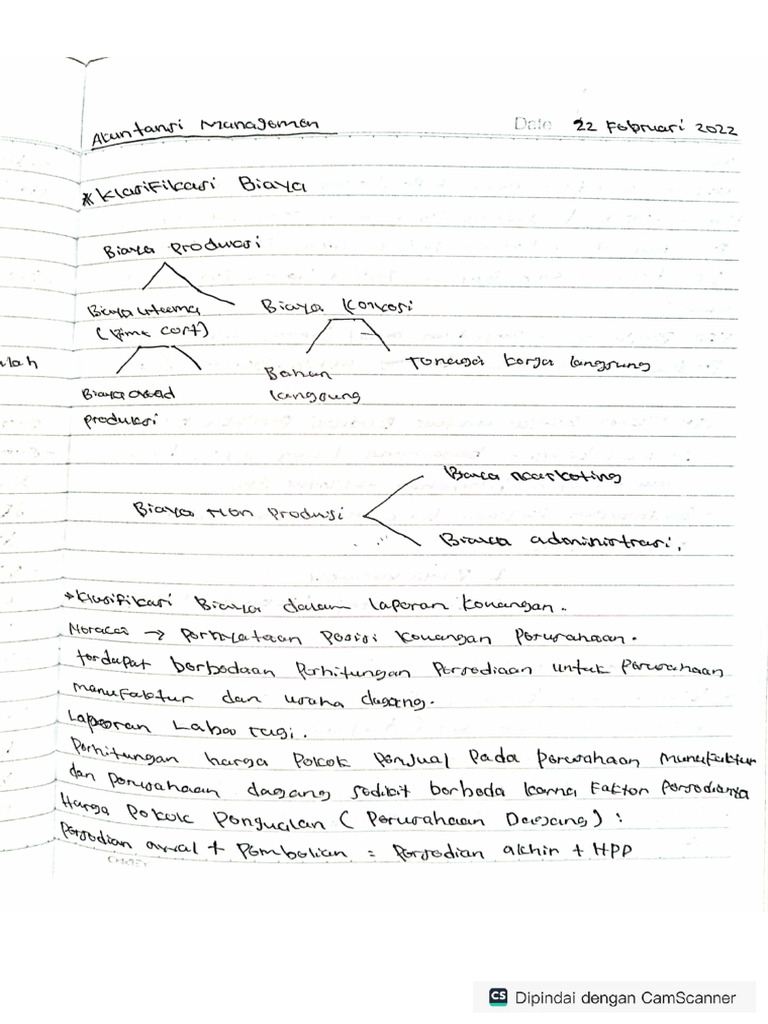 Akuntansi Managemen
Date 22 Februari 2022
*Klasifikasi Biaya
Biaya Produksi
Biaya uteema Biaya Konvosi
(Prime cort)
alah
Bahan Tenaga kerja langsung
Biaya overad langsung
produksi
Biaya marketing
Biaya Non Produksi
Biaya administrasi.
*Klasifikasi Biaya dalam laporan keuangan.
Neraca → Pernyataan Posisi keuangan Perusahaan.
terdapat berbedaan Perhitungan Persediaan untuk Perusahaan
manufaktur dan usaha dagang.
Laporan Laba rugi.
Perhitungan harga Pokok Penjual Pada perusahaan Manufaktur
dan perusahaan dagang sedikit berbeda karna Faktor Persedianya
Harga Pokok Pengualan (Perusahaan Dagang) :
Persedian awal + Pembelian = Persedian akhir + HPP
CS Dipindai dengan CamScanner